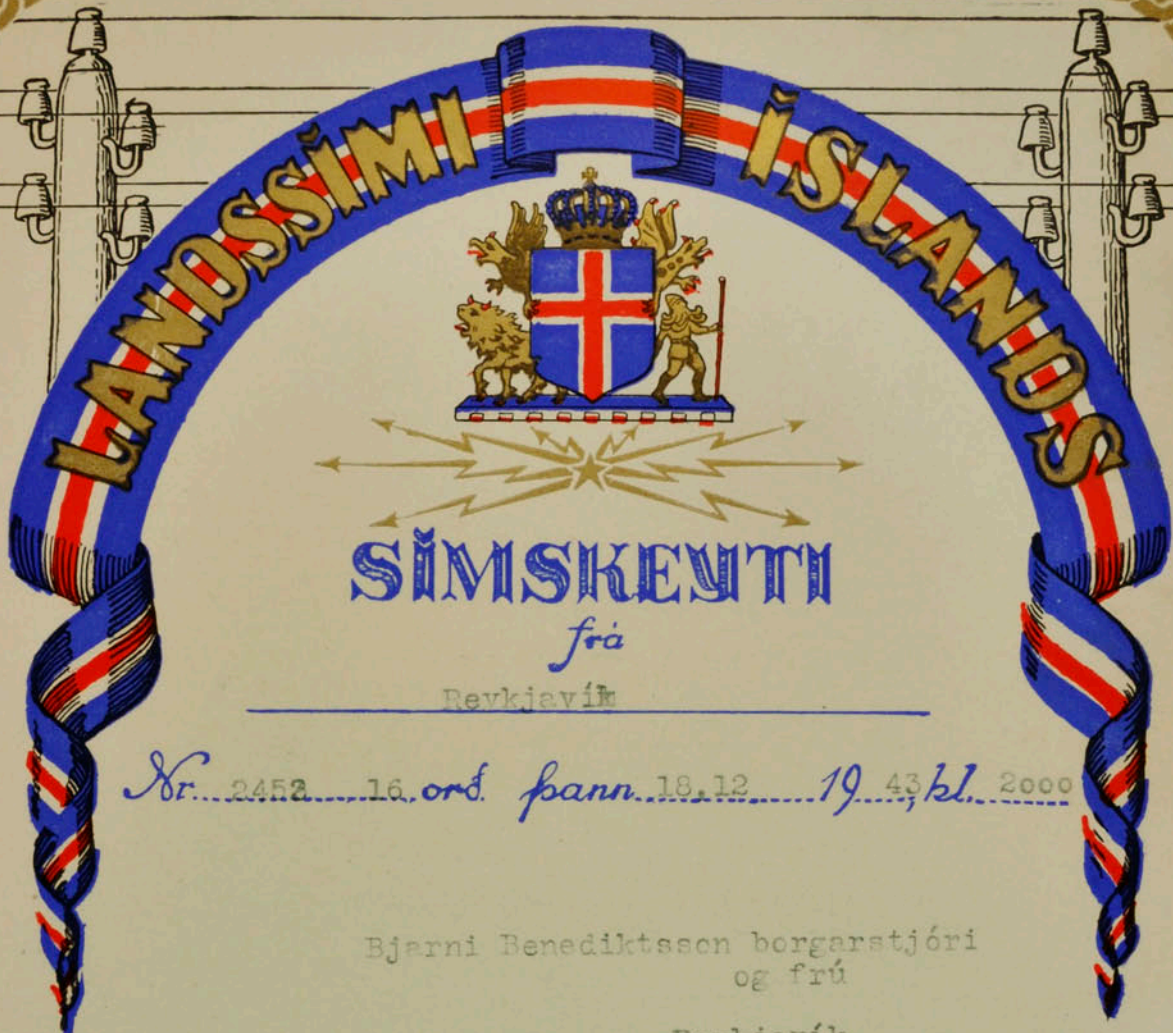 LANDSSÍMI ÍSLANDS
SÍMSKEYTI
frá
Reykjavík
Nr. 2452 16 orð. þann 18.12 19 43, kl. 2000
Bjarni Benediktsson borgarstjóri
og frú